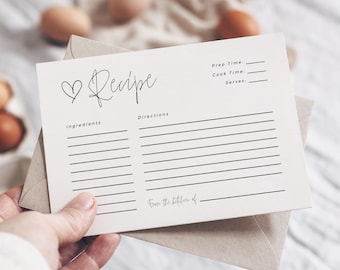 Recipe
Prep Time:
Cook Time:
Serves:
Ingredients
Directions
From the kitchen of: